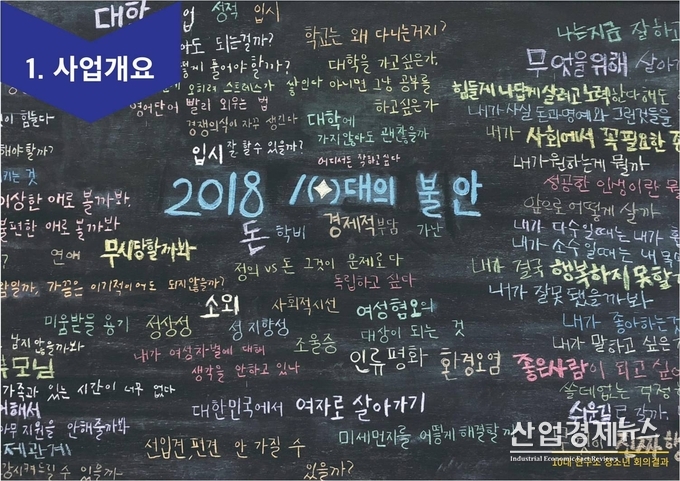 대학 업 성적 입시
1. 사업개요
학교는 왜 다니는거지?
나는지금 잘하고
대학을 가고싶은가,
무엇을위해 살아가
쌀인다 아니면 그냥 공부를
하고싶은가
힘들게 나답게 살려고 노력한다해도
영어단어 빨리 외우는 법
경쟁의식이 자꾸 생긴다
대학에
가지않아도 괜찮을까
내가 사실 돈과명예와 그런것들을
내가 사회에서 꼭필요한
힘들다
해야할까?
입시 잘 할수 있을까?
어디서든 잘하고싶다
내가원하는게 뭘까
성공한 인생이란
키는 것
이상한 애로 볼까봐.
불편한 애로 볼까봐
2018 10대의 불안
앞으로어떻게 살까
내가 다수일때는 내가
내가 소수일때는 내
연애 무시당할까봐
돈 학비 경제적부담 가난
정의 vs 돈 그것이 문제로다
독립하고 싶다
내가 결국 행복하지못할
내가 잘못됐을까봐
가끔은 이기적이어도 되지않을까?
소외 사회적시선
여성혐오의
대상이 되는 것
내가 좋아하는것
미움받을 용기 정상성 성지향성
조울증
내가 말하고 싶은
남지않을까봐
내가 여성차별에 대해
생각을 안하고 있나
인류평화 환경오염
좋은사람이 되고 싶어
부모님
가족과 있는 시간이 너무 없다
쓸데없는 걱정
대한민국에서 여자로 살아가기
지원을 안해줄까봐
선입견,편견 안 가질 수
있을까?
미세먼지를 어떻게 해결할까
산업경제뉴스
Industrial Economic Fact Reviews
10대 연구소 청소년 회의결과